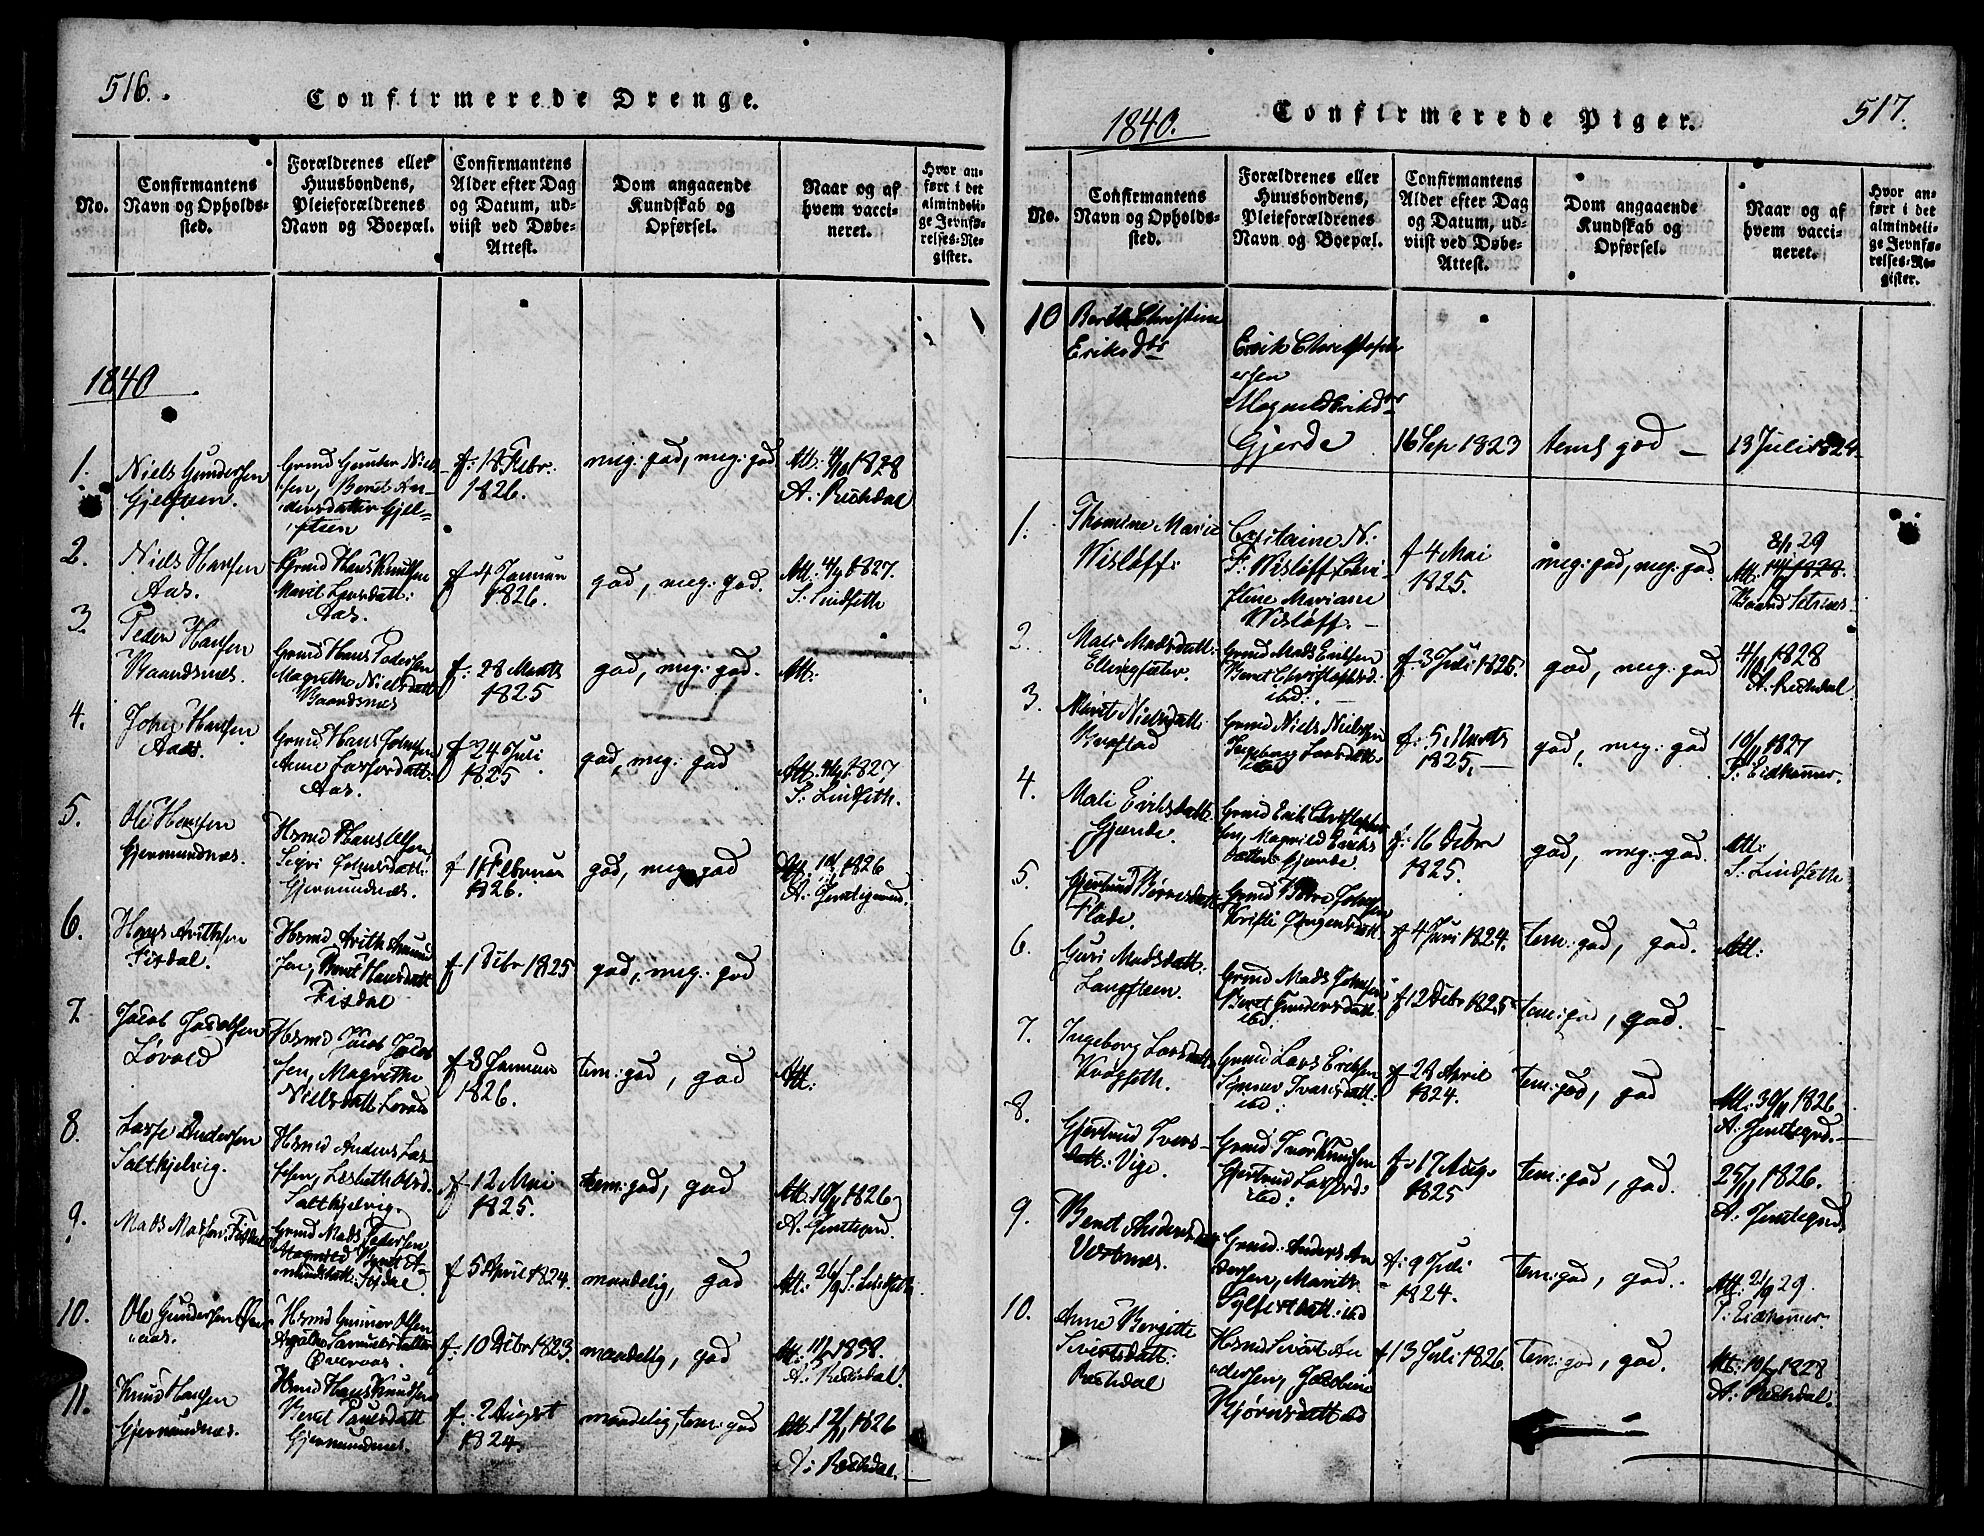 516.
Confirmerede Drenge.
No.
Confirmantens
Navn og Opholds-
sted.
Forældrenes eller
Huusbondens,
Pleieforældrenes
Navn og Boepæl.
Confirmantens
Alder efter Dag
og Datum, ud-
viist ved Døbe-
Attest.
Dom angaaende
Kundskab og
Opførsel.
Naar og af
hvem vacci-
neret.
Hvor an-
ført i det
almindeli-
ge Jevnfø-
relses-Re-
gister.
1840
1.
Niels Gundersen
Gjelsteen.
Grmd Gunder Niel-
sen, Beret An-
dersdatter Gjel-
steen
f: 18 Febr:
1826.
meg: god, meg: god
Att: 4/10 1828
A. Rechdal
2.
Niels Hansen
Aas.
Grmd Hans Knudsen
Marit Larsdatt:
Aas.
f 4 Januar
1826.
god, meg: god.
Att: 1827.
S. Lindseth
3.
Peder Hansen
Vaandsnes.
Grmd Hans Pedersen
Magrethe Nielsdatt
Vaandsnes
f: 28 Marts
1825
god, meg: god.
Att:
4.
John Hansen
Aas.
Grmd Hans Johnsen
Anne Lassesdatt:
Aas.
f 24 Juli
1825
god, meg: god
Att: 1827
S. Lindseth.
5.
Ole Hansen
Gjermundnæs.
Hsmd Hans Olsen,
Sigri Johnsdatt:
Gjermundnæs.
f 11 Februar
1826.
god, meg: god
Att: 1826
A. Jentegaard.
6.
Hans Arithsen
Fisdal.
Hsmd Arith Amund
sen, Beret Hansdatt
Fisdal
f 1 Decbr 1825
god, meg: god
7.
Jacob Jacobsen
Løvold
Hsmd Jacob Jacob
sen, Magrethe
Nielsdatt: Løvold
f 8 Januar
1826.
tem: god, god
Att:
8.
Lasse Andersen
Saltkjelvig.
Hsmd Anders Las-
sesen, Lisbeth Olsd.
Saltkjelvig.
f 12 Mai
1825.
tem: god, god
Att: 10/11 1826
A. Jentegrd.
9.
Mads Madsen, Fisdal
Grmd Mads Pedersen
Beret A-
mundsdatt: Fisdal
f 5 April 1824.
maadelig, god
Att: 26/9 S. Lindseth
10.
Ole Gundersen Øver-
aas.
Hsmd Gunner Olsen
Samuelsdatter
Øveraas
f: 10 Decbr 1823.
maadelig, god
Att: 1838.
A. Rechdal.
11.
Knud Hansen
Gjermundnæs.
Hsmd Hans Knudsen
Beret Paulsdatt
Gjermundnæs.
f. 2 August
1824.
maadelig, tem: god
Att: 12/11 1826
A. Rechdal.
1840.
Confirmerede Piger.
517.
No.
Confirmantens
Navn og Opholds-
sted.
Forældrenes eller
Huusbondens,
Pleieforældrenes
Navn og Boepæl.
Confirmantens
Alder efter Dag
og Datum, ud-
viist ved Døbe-
Attest.
Dom angaaende
Kundskab og
Opførsel.
Naar og af
hvem vacci-
neret.
Hvor an-
ført i det
almindeli-
ge Jevnfø-
relses-Re-
gister.
10
Berith Christine
Eriksdtr
Erik Christoph
ersen
Magnild Eriksdtr
Gjerde
16 Sep 1823
tems god -
13 Juli 1824
1.
Thomine Marie
Wisløff:
Capitaine N.
F. Wisløff, Chri-
stine Mariane
Wisløff. -
f 4 Mai
1825.
meg: god, meg: god.
8/1 29
Att: 1828.
Baard Setnes
2.
Mali Madsdatt:
Ellingsæter.
Grmd Mads Eriksen
Beret Christophsd.
ibd:
f. 3 Juli 1825.
god, meg: god
4/10 1828
A. Rechdal
3.
Marit Nielsdatt:
Grmd Niels Nielsen
Ingeborg Larsdatt:
ibd
f: 5 Marts
1825. -
god, meg: god
10/11 1827
P. Eidhamer.
4.
Mali Eriksdatt:
Gjerde.
Grmd Erik Christopher
sen, Magnild Eriks
datter Gjerde.
f: 16 Octbr
1825.
god, meg: god.
Att:
S. Lindseth
5.
Gjertrud Børresdatt:
Flade.
Grmd Børre Johnsen
Kristi Jørgensdatt
f 4 Juni 1824.
tem: god, god.
Att:
6.
Guri Madsdatt:
Langsteen.
Grmd Mads Johnsen
Beret Gundersdatt:
ibd:
f 12 Decbr 1825
tem: god, god.
-
7.
Ingeborg Larsdatt:
Kragseth.
Grmd Lars Eriksen
Synnev Iversdatt:
ibd:
f 22 April
1824.
tem: god, god
Att: 30/11 1826
A. Jentegrd. -
8.
Gjertrud Ivers-
datt: Vige.
Grmd Iver Knudsen
Gjertrud Lassesd:
ibd:
f. 17 Aug.
1825
tem: god, god.
25/11 1826.
A. Jentegrd.
9.
Beret Andersdatt
Vestnes.
Grmd. Anders An
dersen, Marith
Sylfestdatt: ibd
f: 9 Juli
1824.
tem: god, god.
Att: 21/9 29.
P. Eidhamer.
10.
Anne Bergitte
Sivertsdatt:
Rechdal
Hsmd Sivert An
dersen, Jacobine
Bjørnsdatt ibd
f 13 Juli 1826.
tem: god, god.
Att: 1828
A. Rechdal.